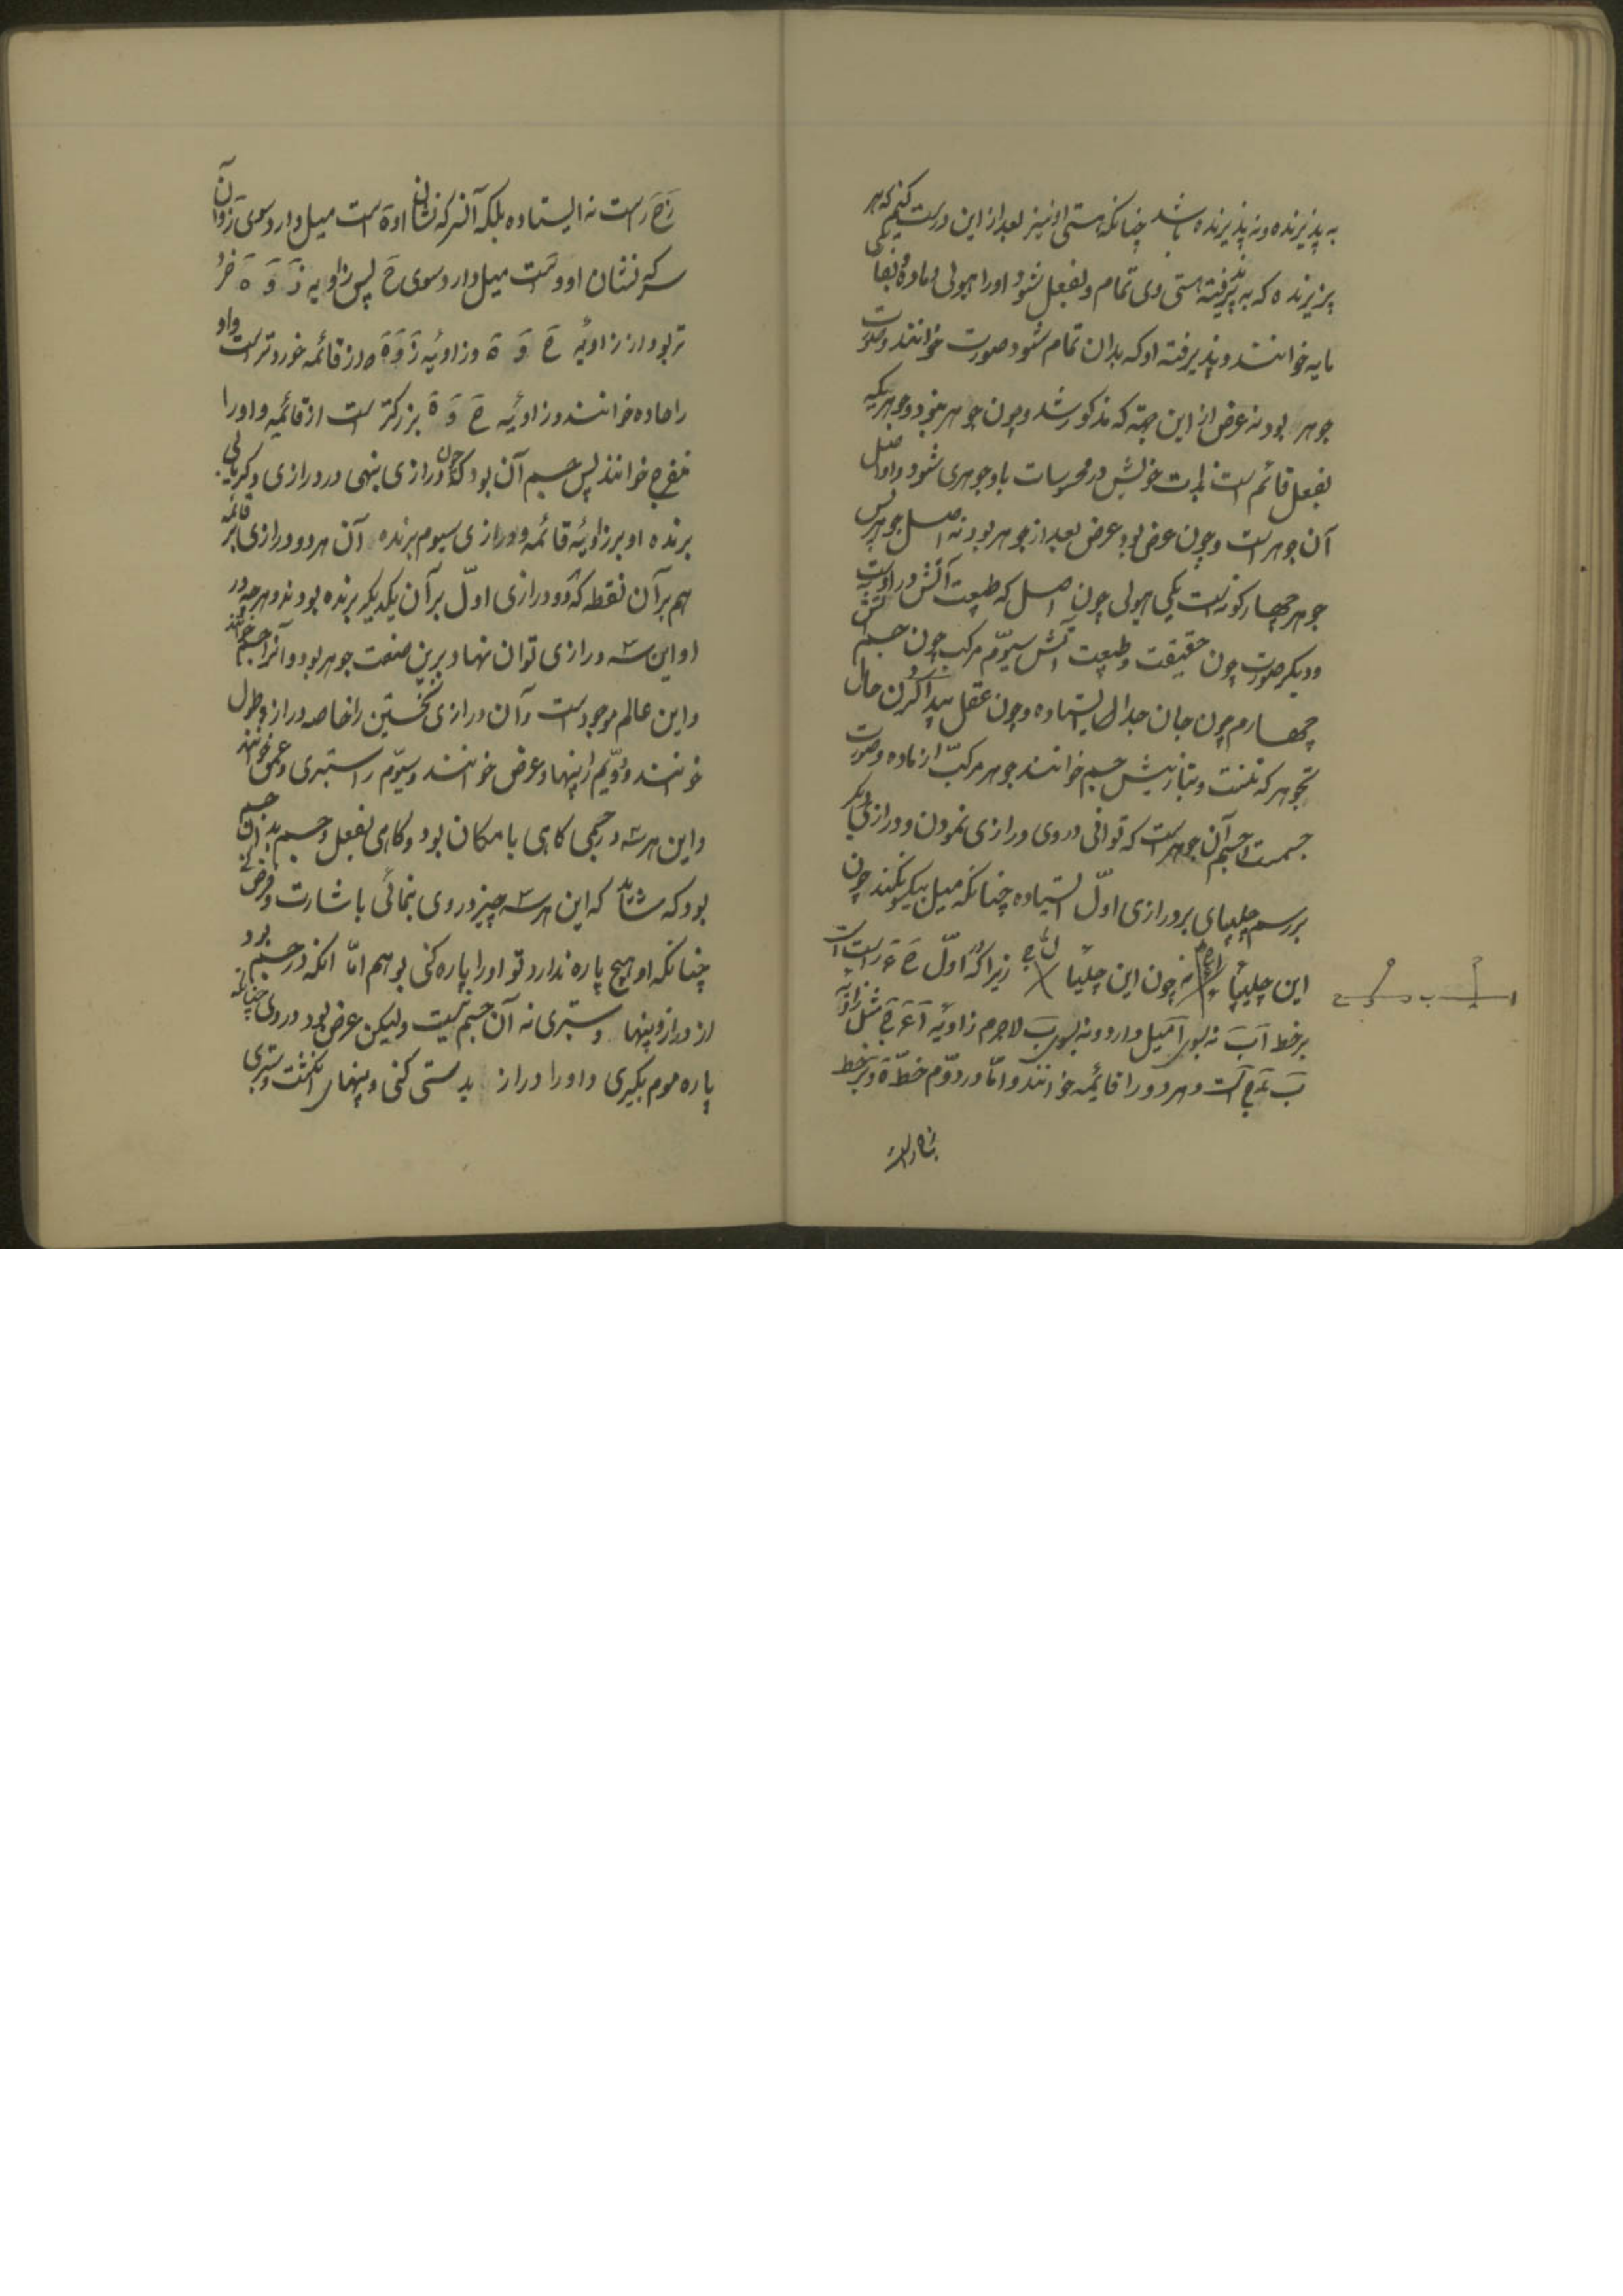 به پذیرنده و نه پذیرنده باشد چنانکه هستی او نیز بعد از این درست کنیم که هر
پذیرنده که به پذیرفته هستی وی تمام و بفعل شود او را هیولی و ماده
مایه خوانند و پذیرفته او که بدان تمام شود صورت خوانند و صورت
جوهر بود نه عرض از این جهة که مذکور شد و چون جوهر نبود و جوهریکه
بفعل قائم است بذات خویش در محسوسات باو جوهری شود و او اصل
آن جوهر است و چون عرض بود و عرض بعد از جوهر بود نه اصل جوهر پس
جوهر چهار گونه است یکی هیولی چون اصل که طبیعت آتش در اوست
و دیگر صورت چون حقیقت و طبیعت آتش سیوّم مرکب چون جسم
چهارم چون جان جدا ایستاده و چون عقل پیدا کردن حال
جوهر که تنست و بتازیش جسم خوانند جوهر مرکب از ماده و صورت
جسمست و جسم آن جوهر است که توانی در وی درازی نمودن و درازی دیگر
بر رسم چلیپای بر درازی اوّل ایستاده چنانکه میل بیکسو نکند چون
این چلیپا نه چون این چلیپا زیرا که در اوّل ح ء راست است
بر خط اب نه بسوی ا میل دارد و نه بسوی ب لاجرم زاویه ا ء ح مثل زاویه
ب ء ح است و هر دو را قائمه خوانند و امّا در دوّم خطّ ه و بر خط
زح راست
زح راست نه ایستاده بلکه آن سر که نشان او ه است میل دارد سوی ز و آن
سر که نشان او و است میل دارد سوی ح پس زاویه ز و ه خرد
تر بود از زاویه ح و ه و زاویه ز و ه از قائمه خوردتر است و او
را حاده خوانند و زاویه ح و ه بزرگتر است از قائمه و او را
منفرج خوانند پس جسم آن بود که چون درازی بنهی در وی درازی دیگر یابی
برنده او بر زاویه قائمه و درازی سیوم برنده آن هر دو درازی بر قائمه
هم بر آن نقطه که دو درازی اوّل بر آن یکدیگر برنده بودند و هر چه در
او این سه درازی توان نهاد برین صفت جوهر بود و آنرا جسم خوانند
و این عالم موجود است و آن درازی نخستین را خاصه دراز و طول
خوانند و دوّیم را پهنا و عرض خوانند و سیوّم را ستبری و عمق خوانند
و این هر سه در جسمی گاهی بامکان بود و گاهی بفعل و جسم بدان جسم
بود که شاید که این هر سه چیز در وی بنمائی باشارت و فرض کنی
چنانکه او هیچ پاره ندارد تو او را پاره کنی بوهم امّا آنکه در جسم بود
از دراز و پهنا و ستبری نه آن جسم است ولیکن عرض بود در وی چنانکه
پاره موم بگیری و او را دراز بدستی کنی و پهنا انگشت و ستبری